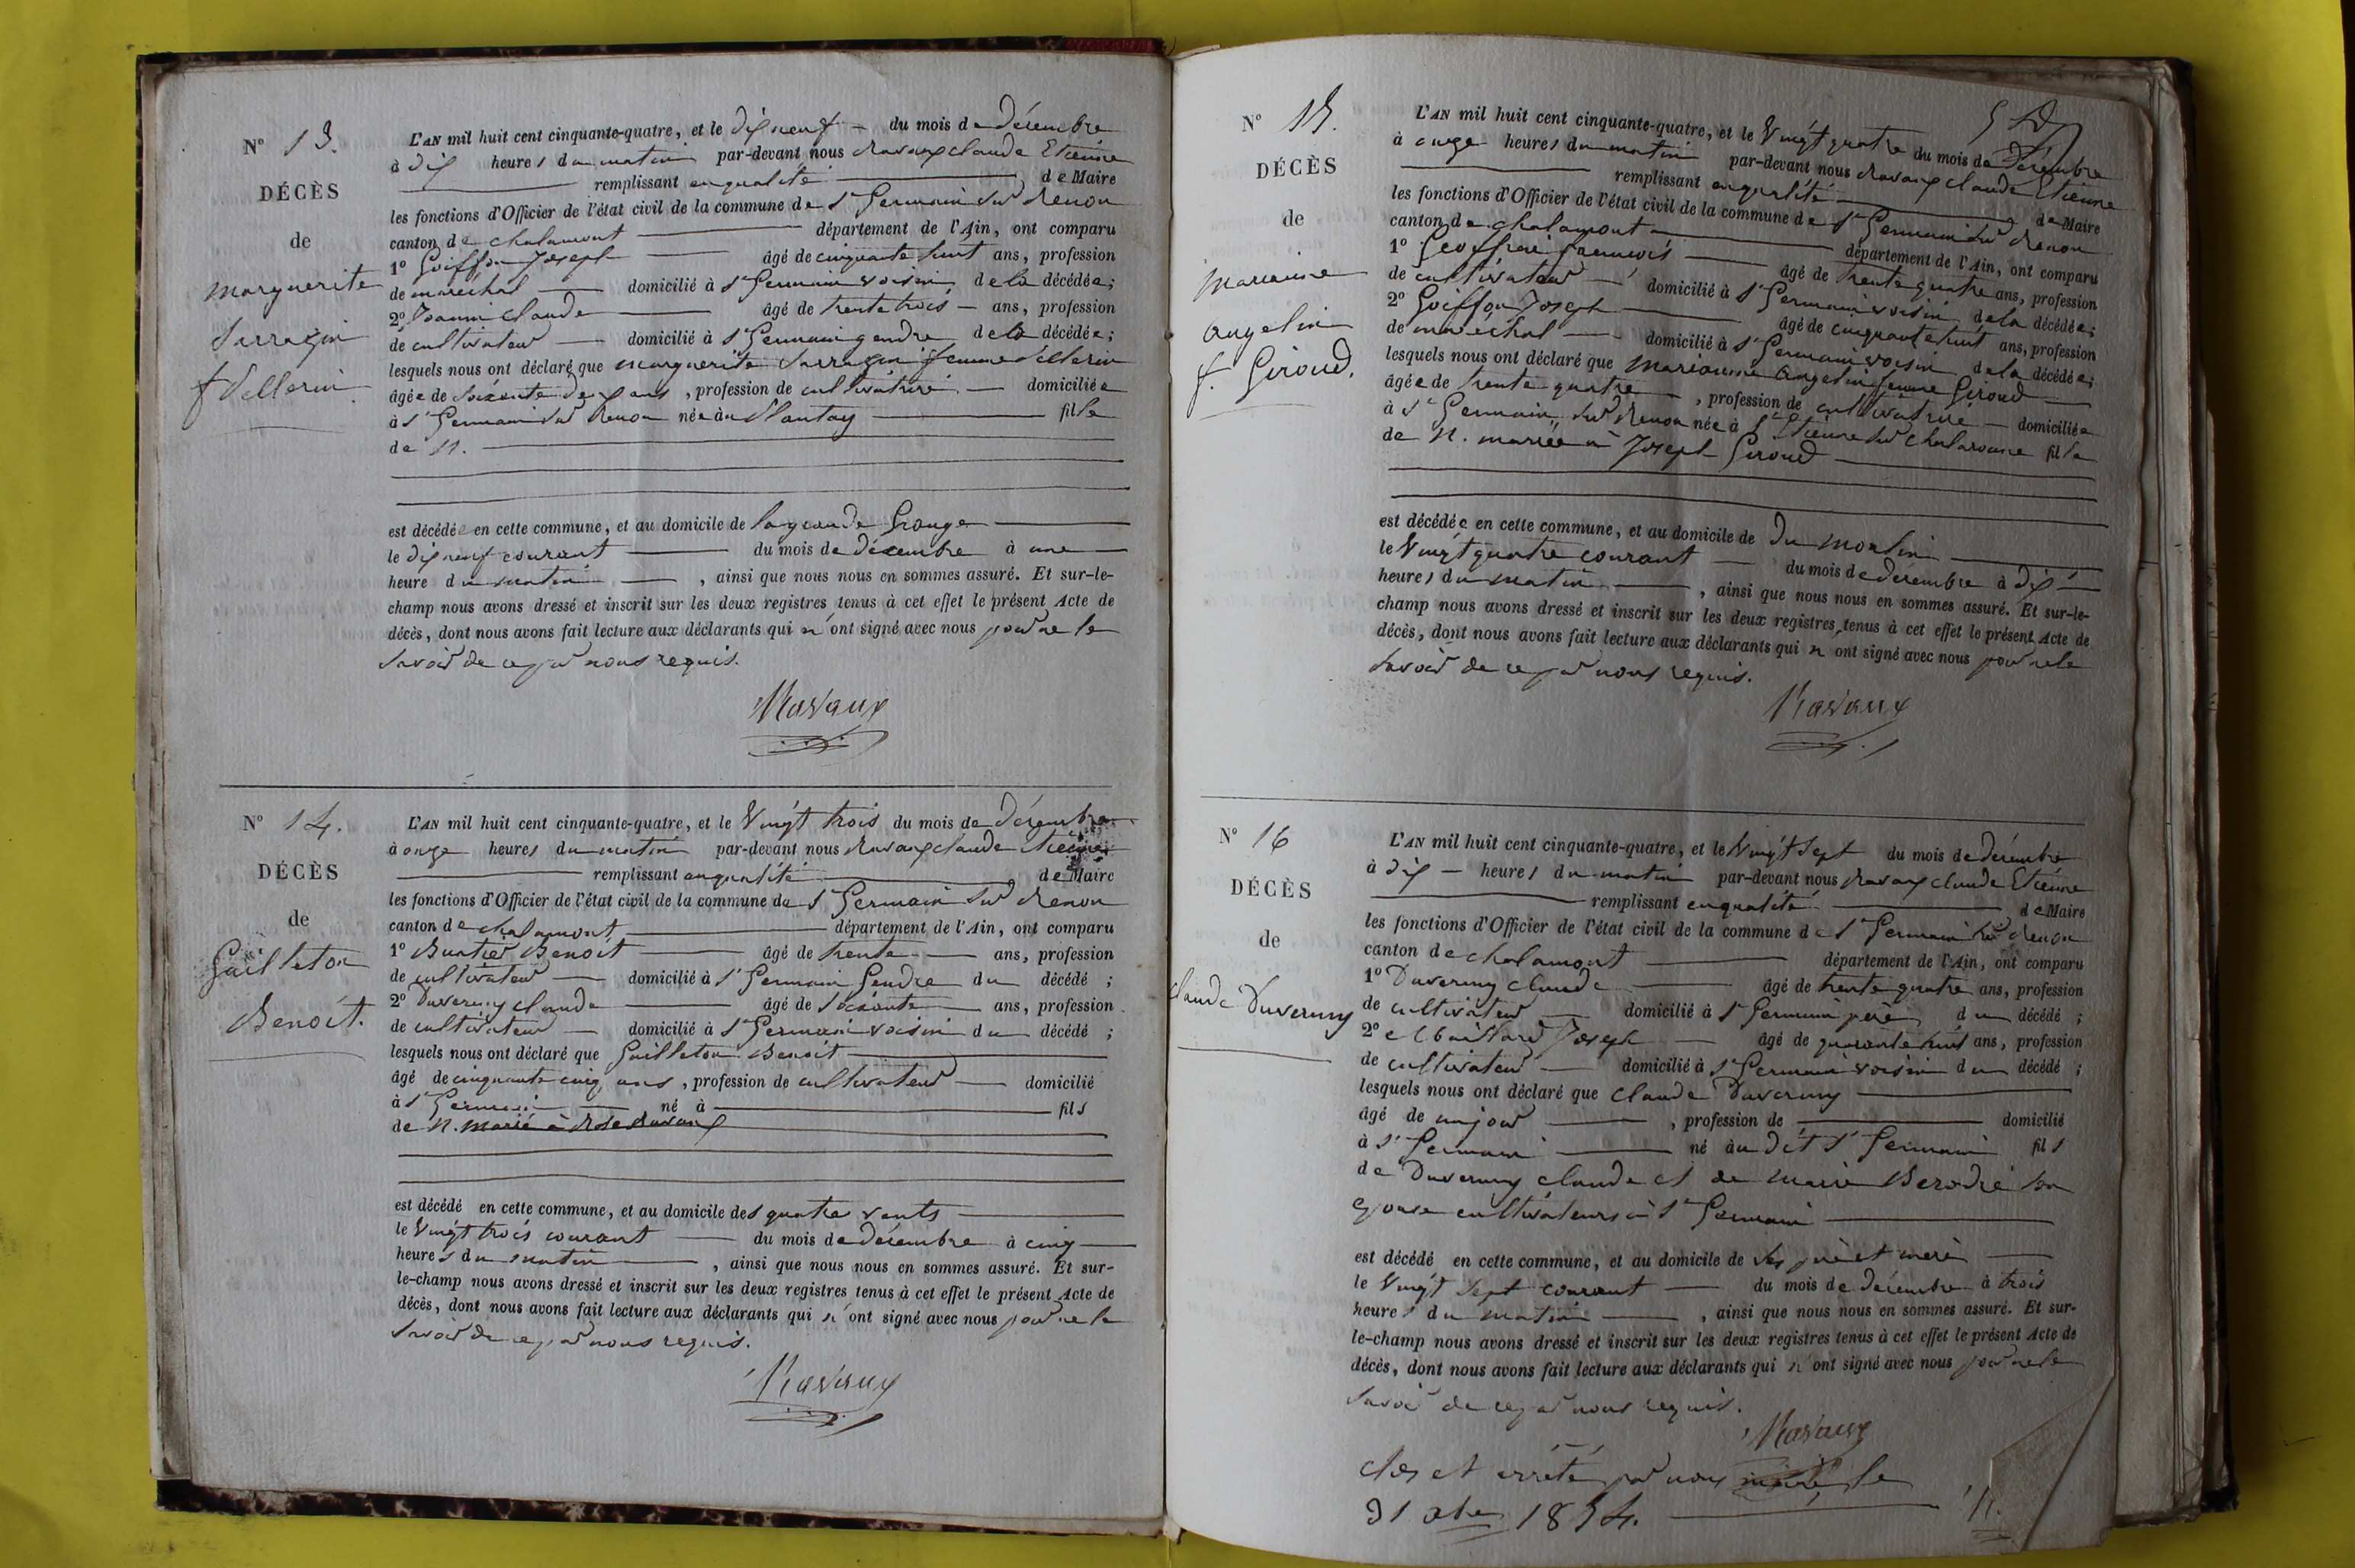 N° 13.
DÉCÈS
de
Marguerite
Sarrazin
f Pellerin
L'AN mil huit cent cinquante-quatre, et le dix neuf du mois de décembre
à dix heures du matin par-devant nous Ravaux claude Etienne
remplissant en qualité de Maire
les fonctions d'Officier de l'état civil de la commune de St Germain sur Renon
canton de chalamont département de l'Ain, ont comparu
1° Goiffon Joseph âgé de cinquante huit ans, profession
de maréchal domicilié à St Germain voisin de la décédée;
2° Joanin claude âgé de trente trois ans, profession
de cultivateur domicilié à St Germain gendre de la décédée;
lesquels nous ont déclaré que marguerite Sarrazin femme Pellerin
âgée de soixante dix ans, profession de cultivatrice domiciliée
à St Germain sur Renon née au Plantay fille
de N.
est décédée en cette commune, et au domicile de la grande Grange
le dix neuf courant du mois de décembre à une
heure du matin, ainsi que nous nous en sommes assuré. Et sur-le-
champ nous avons dressé et inscrit sur les deux registres tenus à cet effet le présent Acte de
décès, dont nous avons fait lecture aux déclarants qui n'ont signé avec nous pour ne le
savoir de ce par nous requis.
Ravaux
N° 14.
DÉCÈS
de
Gailleton
Benoit.
L'AN mil huit cent cinquante-quatre, et le Vingt trois du mois de décembre
à onze heures du matin par-devant nous Ravaux claude Etienne
remplissant en qualité de Maire
les fonctions d'Officier de l'état civil de la commune de St Germain sur Renon
canton de chalamont département de l'Ain, ont comparu
1° Buatier Benoit âgé de trente ans, profession
de cultivateur domicilié à St Germain Gendre du décédé;
2° Duverny claude âgé de soixante ans, profession
de cultivateur domicilié à St Germain voisin du décédé;
lesquels nous ont déclaré que Gailleton Benoit
âgé de cinquante cinq ans, profession de cultivateur domicilié
à St Germain né à fils
de N. marié à Rose Ravaux
est décédé en cette commune, et au domicile des quatre vents
le Vingt trois courant du mois de décembre à cinq
heures du matin, ainsi que nous nous en sommes assuré. Et sur-
le-champ nous avons dressé et inscrit sur les deux registres tenus à cet effet le présent Acte de
décès, dont nous avons fait lecture aux déclarants qui n'ont signé avec nous pour ne le
savoir de ce par nous requis.
Ravaux
N° 15.
DÉCÈS
de
Marianne
Angelin
f. Giroud.
L'AN mil huit cent cinquante-quatre, et le Vingt quatre du mois de Décembre
à onze heures du matin par-devant nous Ravaux claude Etienne
remplissant en qualité de Maire
les fonctions d'Officier de l'état civil de la commune de St Germain sur Renon
canton de chalamont département de l'Ain, ont comparu
1° Geoffrai francois âgé de trente quatre ans, profession
de cultivateur domicilié à St Germain voisin de la décédée;
2° Goiffon Joseph âgé de cinquante huit ans, profession
de maréchal domicilié à St Germain voisin de la décédée;
lesquels nous ont déclaré que Marianne Angelin femme Giroud
âgée de trente quatre, profession de cultivatrice domiciliée
à St Germain sur Renon née à St Etienne sur chalaronne fille
de N. mariée à Joseph Giroud
est décédée en cette commune, et au domicile de Du moulin
le Vingt quatre courant du mois de décembre à dix
heures du matin, ainsi que nous nous en sommes assuré. Et sur-le-
champ nous avons dressé et inscrit sur les deux registres tenus à cet effet le présent Acte de
décès, dont nous avons fait lecture aux déclarants qui n'ont signé avec nous pour ne le
savoir de ce par nous requis.
Ravaux
N° 16
DÉCÈS
de
claude Duverny
L'AN mil huit cent cinquante-quatre, et le Vingt Sept du mois de décembre
à dix heures du matin par-devant nous Ravaux claude Etienne
remplissant en qualité de Maire
les fonctions d'Officier de l'état civil de la commune de St Germain sur Renon
canton de chalamont département de l'Ain, ont comparu
1° Duverny claude âgé de trente quatre ans, profession
de cultivateur domicilié à St Germain père du décédé;
2° Joseph âgé de quarante huit ans, profession
de cultivateur domicilié à St Germain voisin du décédé;
lesquels nous ont déclaré que claude Duverny
âgé de un jour, profession de domicilié
à St Germain né au dit St Germain fils
de Duverny claude et de marie Berodié son
épouse cultivateurs à St Germain
est décédé en cette commune, et au domicile de ses père et mère
le Vingt Sept courant du mois de décembre à trois
heures du matin, ainsi que nous nous en sommes assuré. Et sur-
le-champ nous avons dressé et inscrit sur les deux registres tenus à cet effet le présent Acte de
décès, dont nous avons fait lecture aux déclarants qui n'ont signé avec nous pour ne le
savoir de ce par nous requis.
Ravaux
clos et arrêté par nous maire le
31 xbre 1854.